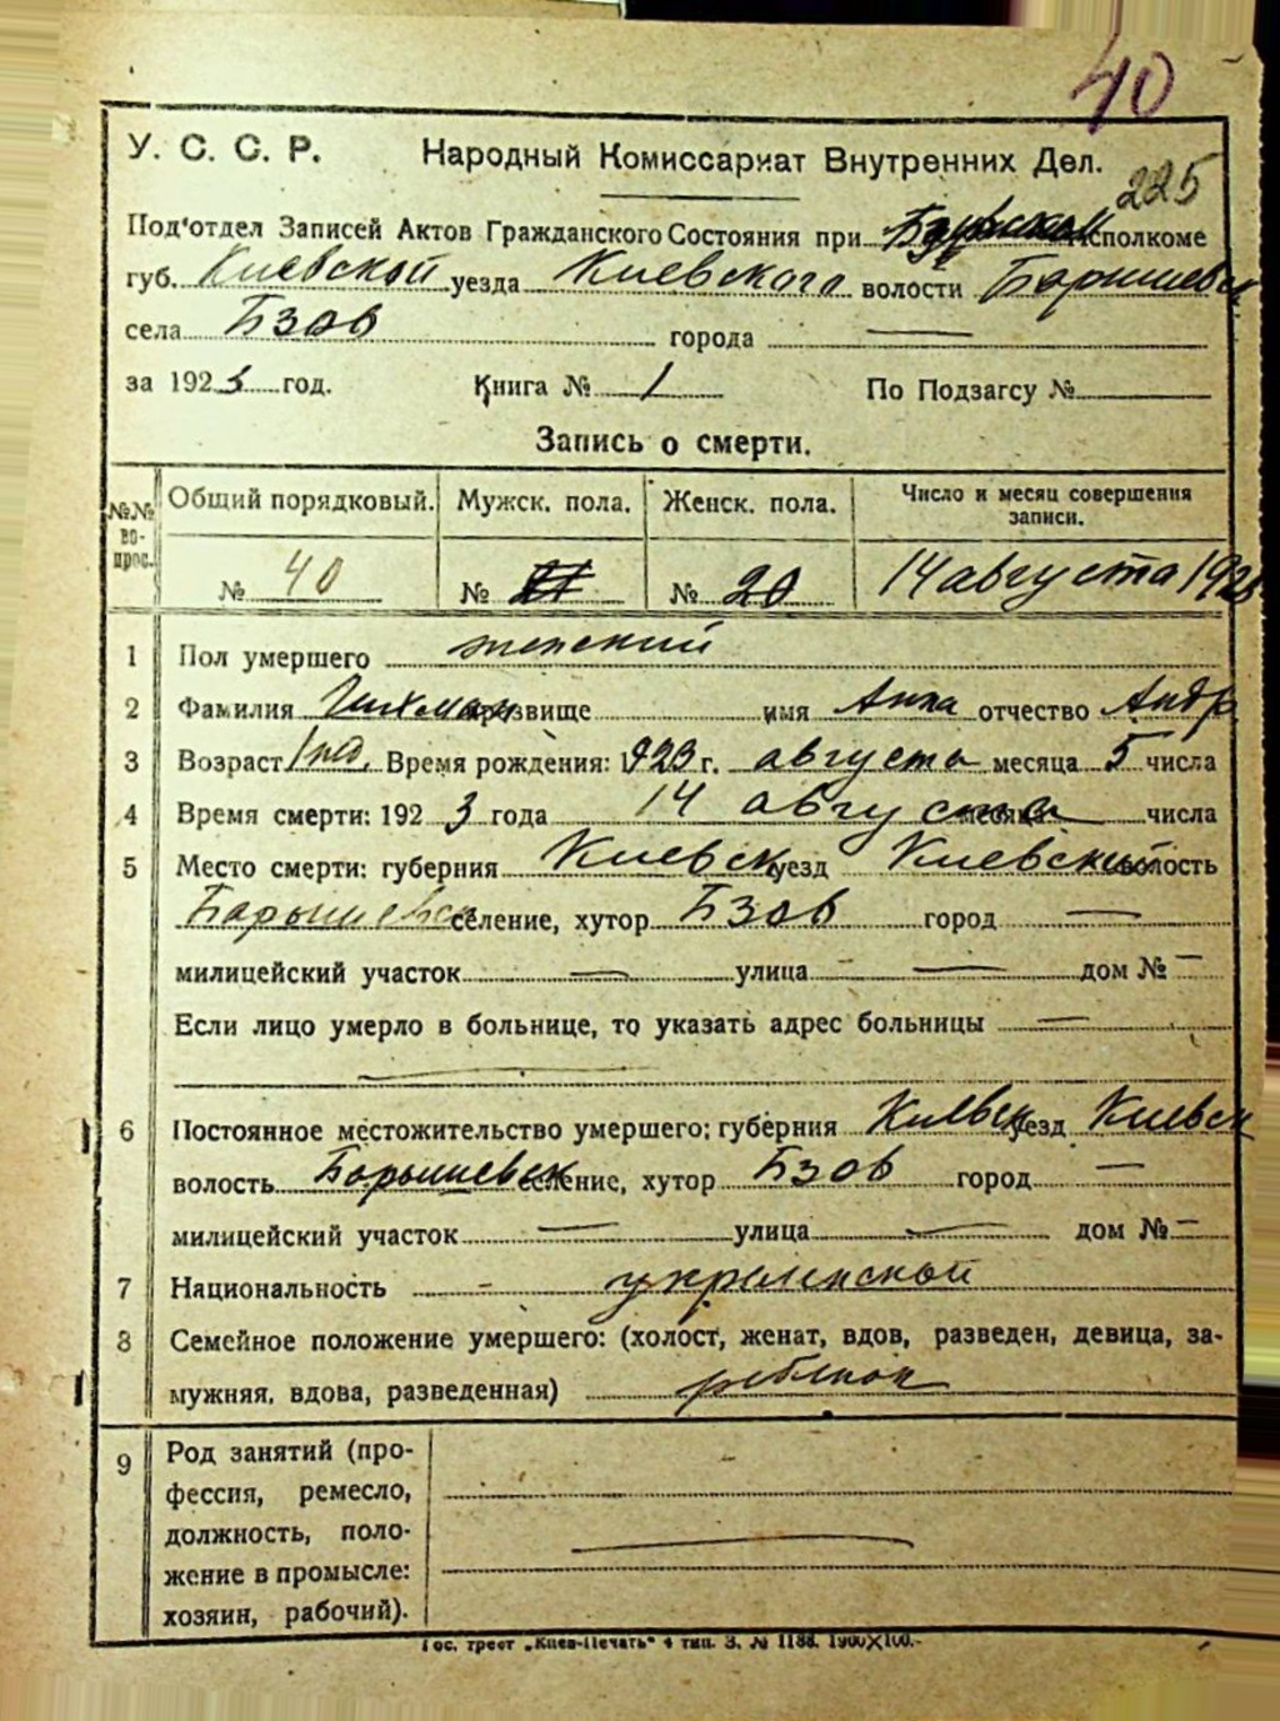 40
У. С. С. Р. Народный Комиссариат Внутренних Дел.
225
Под'отдел Записей Актов Гражданского Состояния при Бзовском исполкоме
губ. Киевской уезда Киевского волости Барышевск
села Бзов города —
за 1923 год. Книга № 1 По Подзагсу №
Запись о смерти.
№№ вопрос. Общий порядковый. Мужск. пола. Женск. пола. Число и месяц совершения записи.
№ 40 № 21 № 20 14 августа 1923
1 Пол умершего женский
2 Фамилия прозвище имя Анна отчество Андр
3 Возраст Время рождения: 1923 г. августа месяца 5 числа
4 Время смерти: 192 3 года 14 августа месяца числа
5 Место смерти: губерния Киевск уезд Киевский волость
Барышевск селение, хутор Бзов город —
милицейский участок — улица — дом № —
Если лицо умерло в больнице, то указать адрес больницы —
—
6 Постоянное местожительство умершего: губерния Киевск уезд Киевск
волость Барышевск селение, хутор Бзов город —
милицейский участок — улица — дом № —
7 Национальность - украинской
8 Семейное положение умершего: (холост, женат, вдов, разведен, девица, за-
мужняя, вдова, разведенная) ребенок
9 Род занятий (про-
фессия, ремесло,
должность, поло- —
жение в промысле:
хозяин, рабочий).
Гос. трест „Киев-Печать" 4 тип. З. № 1188. 1900×100.-